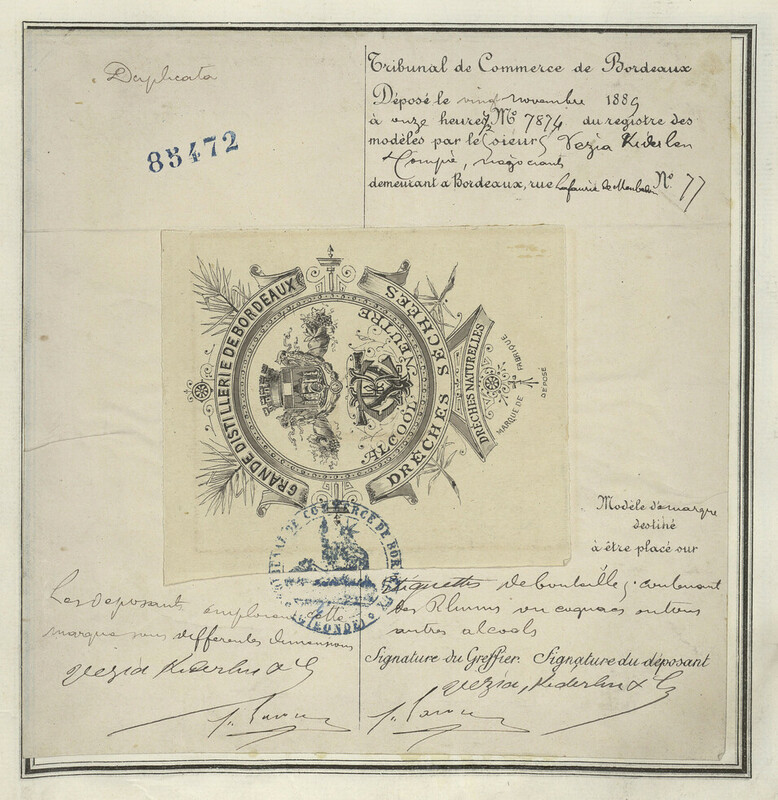 Duplicata
85472
Tribunal de Commerce de Bordeaux
Déposé le vingt novembre 1889
à onze heures ½ No 7874 du registre des
modèles par le Sieurs Vezia Kiderlen
& Compie, négociants
demeurant a Bordeaux, rue Lafaurie de Monbadon No 77
GRANDE DISTILLERIE DE BORDEAUX
ALCOOL NEUTRE
DRÊCHES SÉCHÉES
DRÈCHES NATURELLES
MARQUE DE FABRIQUE
DÉPOSÉ
TRIBUNAL DE COMMERCE DE BORDEAUX
(GIRONDE)
Modèle de marque
destiné
à être placé sur
étiquettes de bouteilles contenant
des Rhums ou cognacs ou tous
autres alcools
Les deposants emploieront cette
marque sous differentes dimensions
Vezia Kiderlen & Cie
Signature du Greffier. Signature du déposant
Vezia, Kiderlen & Cie